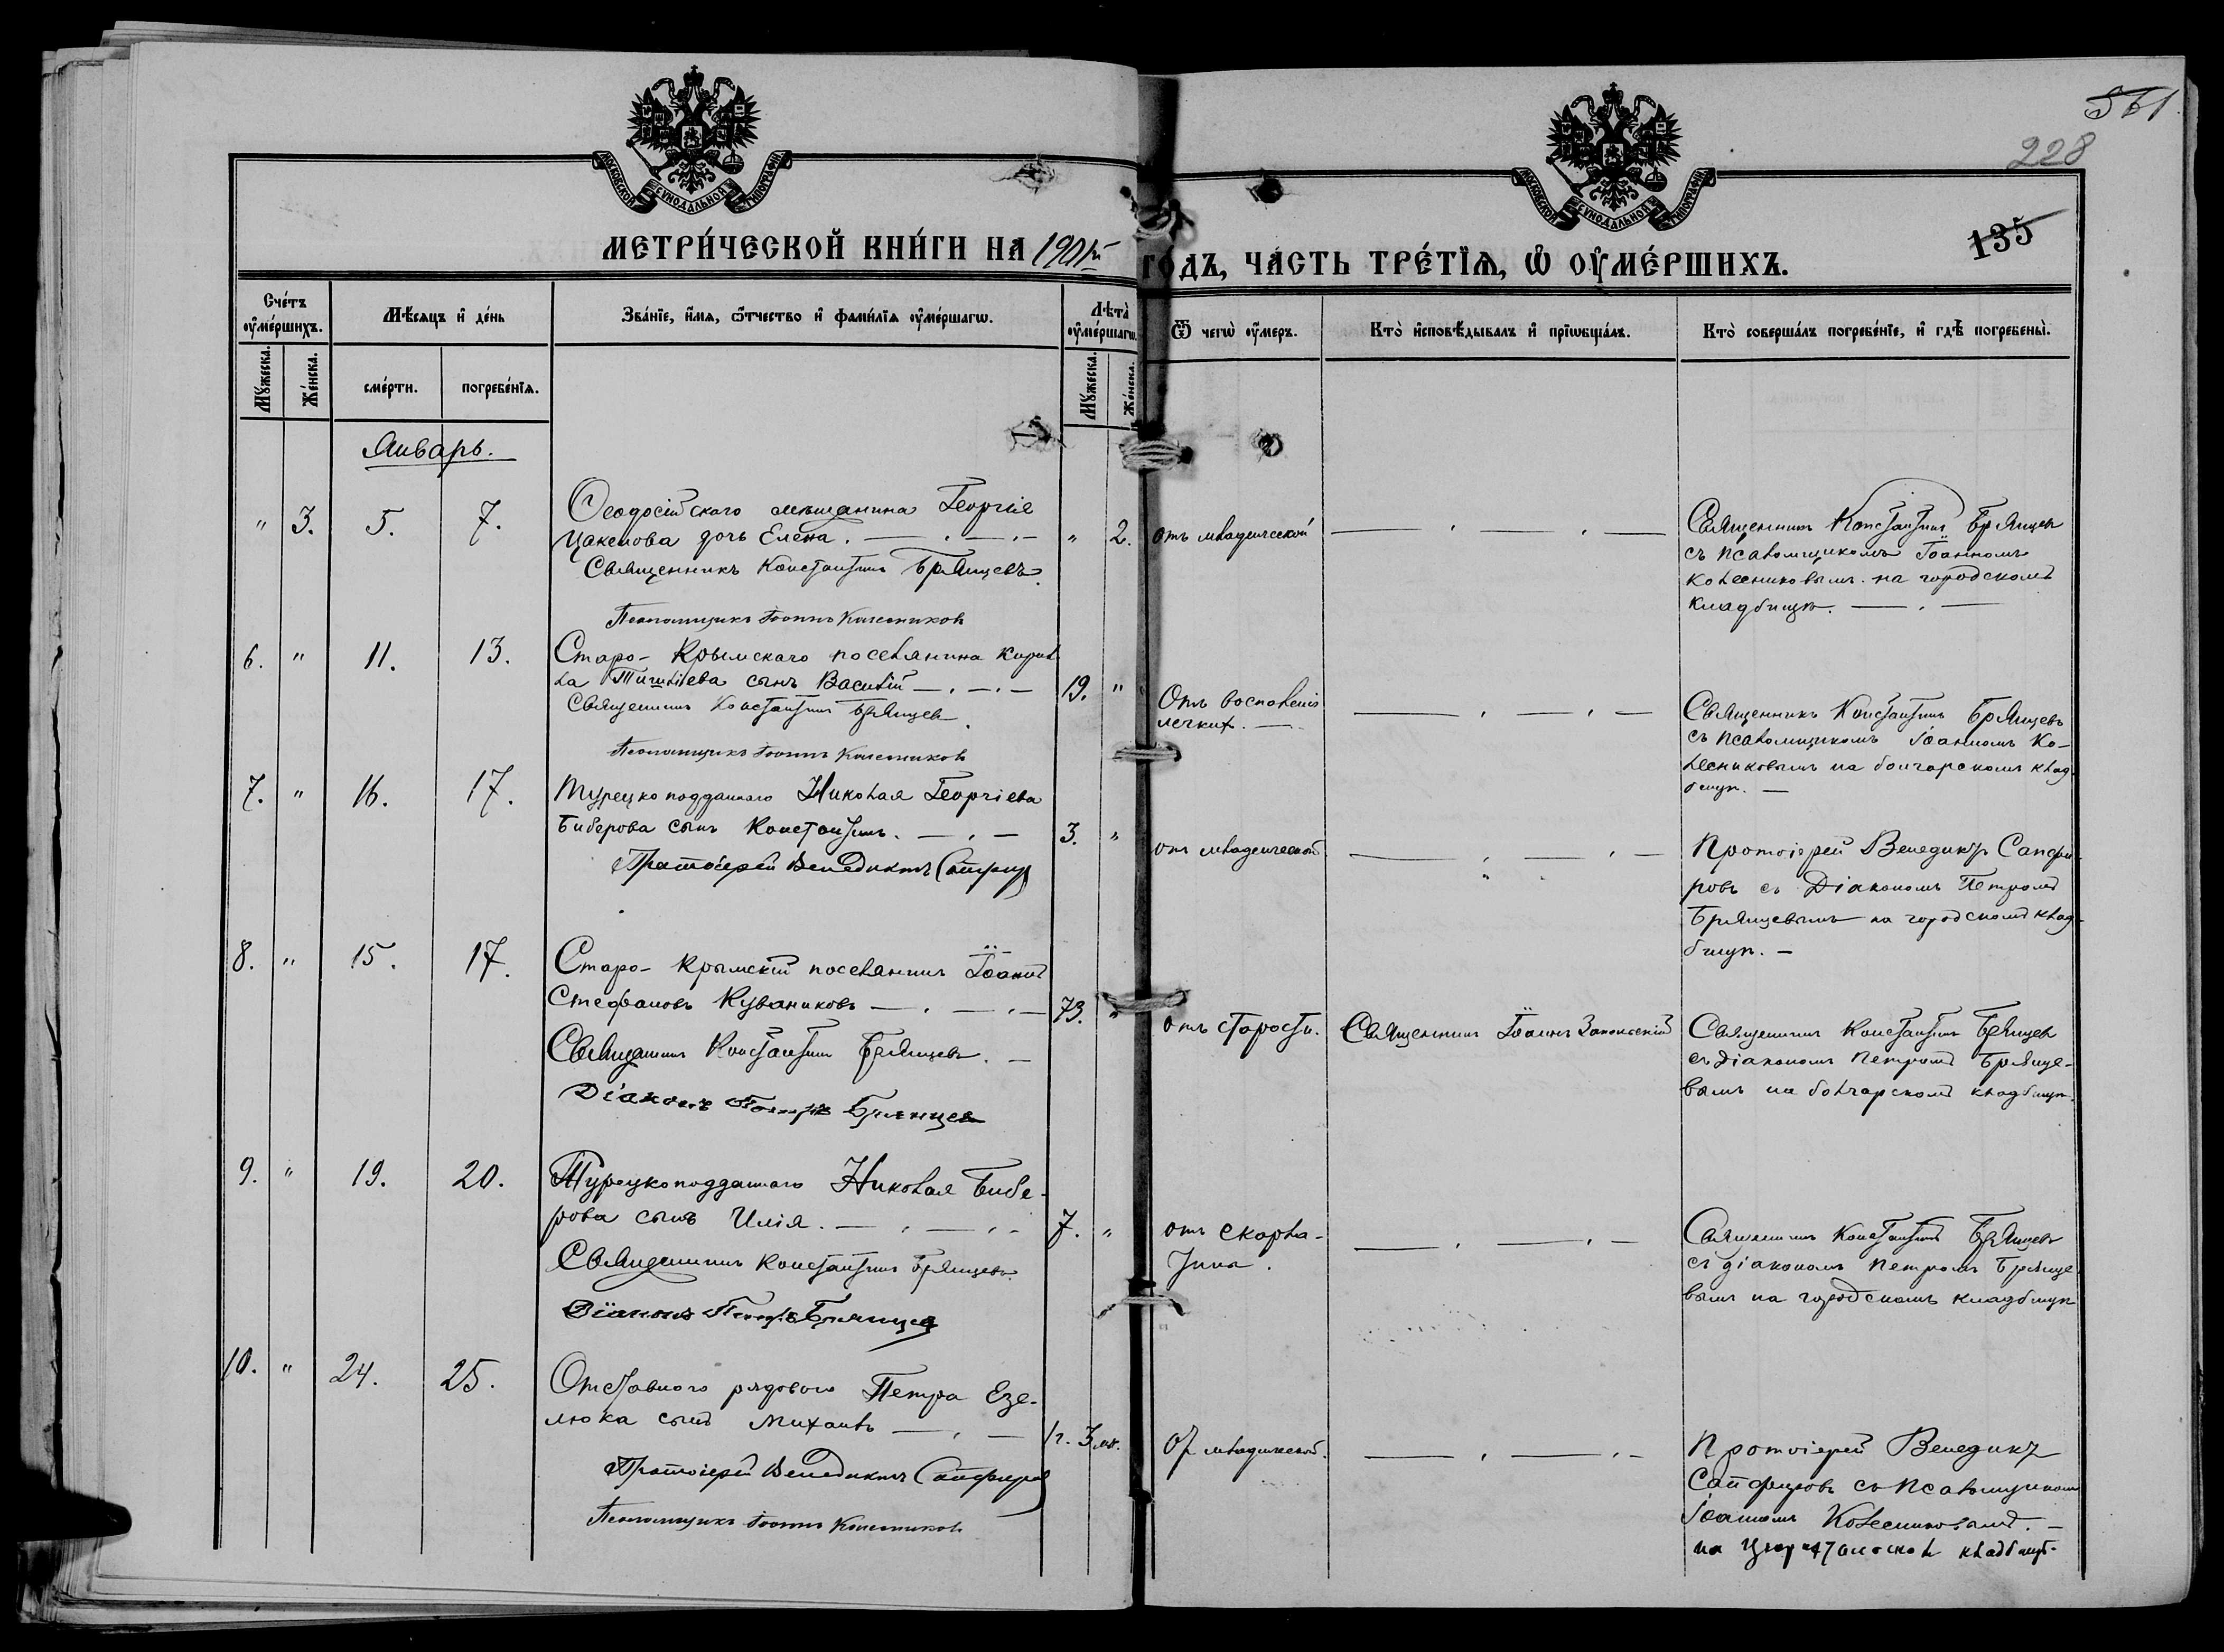 561
228
135
МОСКОВСКОЙ СУНОДАЛЬНОЙ ТИПОГРАФІИ
МОСКОВСКОЙ СУНОДАЛЬНОЙ ТИПОГРАФІИ
МЕТРИ́ЧЕСКОЙ КНИ́ГИ НА 1901й ГО́ДЪ, ЧА́СТЬ ТРЕ́ТІѦ, Ѡ ОУМЕ́РШИХЪ.
Сче́тъ оумершихъ.
Мужеска.
Же́нска.
Мѣсѧцъ и де́нь
сме́рти.
погребе́нїѧ.
Зва́нїе, имѧ, ѻтчество и фами́лїѧ оуме́ршагѡ.
Лѣта̀ оуме́ршагѡ.
Мужеска.
Же́нска.
Ѿ чегѡ̀ оумеръ.
Кто̀ исповѣдывалъ и прїѡбща́лъ.
Кто̀ соверша́лъ погребе́нїе, и гдѣ̀ погребены̀.
Январь.
" 3. 5. 7.
Ѳеодосійскаго мѣщанина Георгія
Цакелова дочь Елена.
Священникъ Константинъ Брянцевъ.
Псаломщикъ Іоаннъ Колесниковъ
" 2.
отъ младенческой
Священникъ Константинъ Брянцевъ
съ псаломщикомъ Іоанномъ
Колесниковымъ на городскомъ
кладбищѣ.
6. " 11. 13.
Старо-Крымскаго поселянина Кирил-
ла сынъ Василій
Священникъ Константинъ Брянцевъ.
Псаломщикъ Іоаннъ Колесниковъ
19. "
Отъ воспаленія
легкихъ.
Священникъ Константинъ Брянцевъ
съ псаломщикомъ Іоанномъ Ко-
лесниковымъ на болгарскомъ клад-
бищѣ.
7. " 16. 17.
Турецкоподданнаго Николая Георгіева
Биберова сынъ Константинъ.
Протоіерей Венедиктъ Сапфировъ
3. "
отъ младенческой
Протоіерей Венедиктъ Сапфи-
ровъ съ Діакономъ Петромъ
Брянцевымъ на городскомъ клад-
бищѣ.
8. " 15. 17.
Старо-Крымскій поселянинъ Іоаннъ
Стефановъ Куваниковъ
Священникъ Константинъ Брянцевъ.
Діаконъ Петръ Брянцевъ
73. "
отъ старости.
Священникъ Іоаннъ
Священникъ Константинъ Брянцевъ
съ діакономъ Петромъ Брянце-
вымъ на болгарскомъ кладбищѣ.
9. " 19. 20.
Турецкоподданнаго Николая Бибе-
рова сынъ Илія.
Священникъ Константинъ Брянцевъ.
Діаконъ Петръ Брянцевъ
7. "
отъ скарла-
тина.
Священникъ Константинъ Брянцевъ
съ діакономъ Петромъ Брянце-
вымъ на городскомъ кладбищѣ
10. " 24. 25.
Отставного рядового Петра Езе-
люка сынъ Михаилъ
Протоіерей Венедиктъ Сапфировъ
Псаломщикъ Іоаннъ Колесниковъ
1г. 3 м.
От младенческой.
Протоіерей Венедиктъ
Сапфировъ съ псаломщикомъ
Іоанномъ Колесниковымъ.
на кладбищѣ.